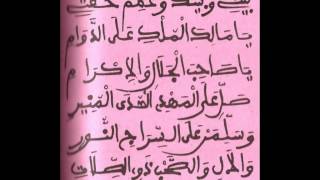 يَا مَالِكَ الْمُلْكِ عَلَى الدَّوَامِ
يَا صَاحِبَ الْجَلَالِ وَالْإِكْرَامِ
صَلِّ عَلَى الْمَهْدِيِّ الْهُدَى الْمُنِيرِ
وَسَلِّمَنْ عَلَى السِّرَاجِ النُّورِ
وَالْآلِ وَالصَّحْبِ ذَوِي الصِّلَاتِ